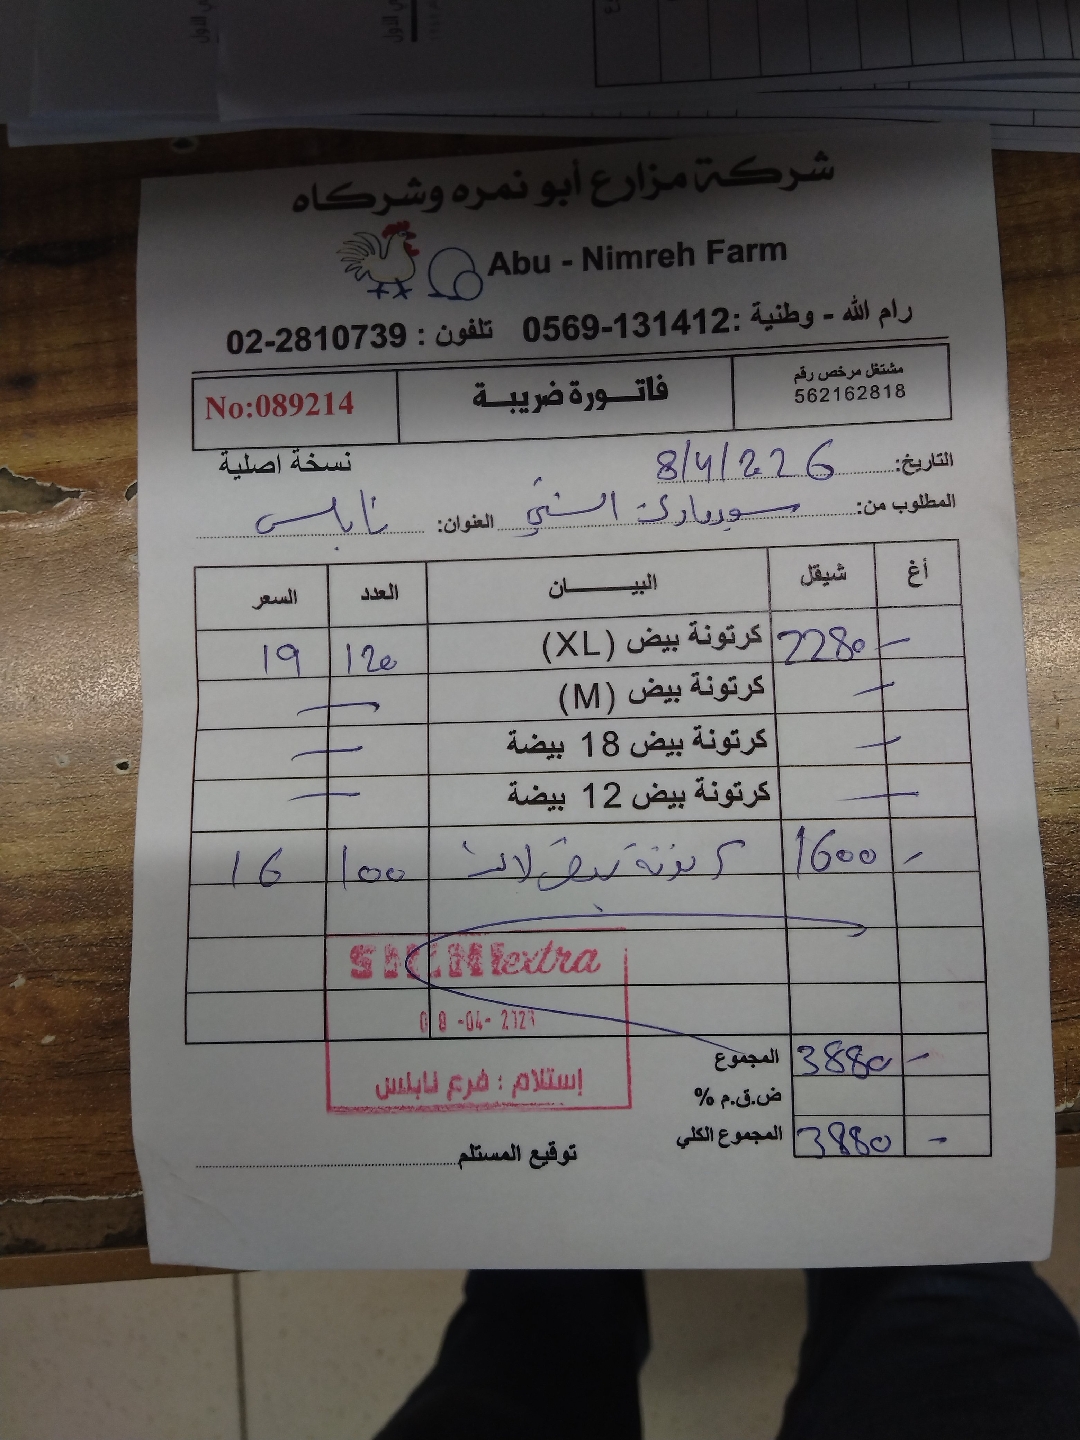 شركة مزارع أبو نمره وشركاه
Abu - Nimreh Farm
رام الله - وطنية :0569-131412 تلفون : 02-2810739
مشتغل مرخص رقم
562162818
فاتورة ضريبة
No:089214
نسخة اصلية
التاريخ: 8/4/226
المطلوب من: السني العنوان: نابلس
أغ شيقل البيان العدد السعر
- 2280 كرتونة بيض (XL) 120 19
- كرتونة بيض (M) -
- كرتونة بيض 18 بيضة -
- كرتونة بيض 12 بيضة -
- 1600 كرتونة بيض 100 16
extra
إستلام : فرع نابلس
المجموع 3880 -
ض.ق.م %
المجموع الكلي 3880 -
توقيع المستلم